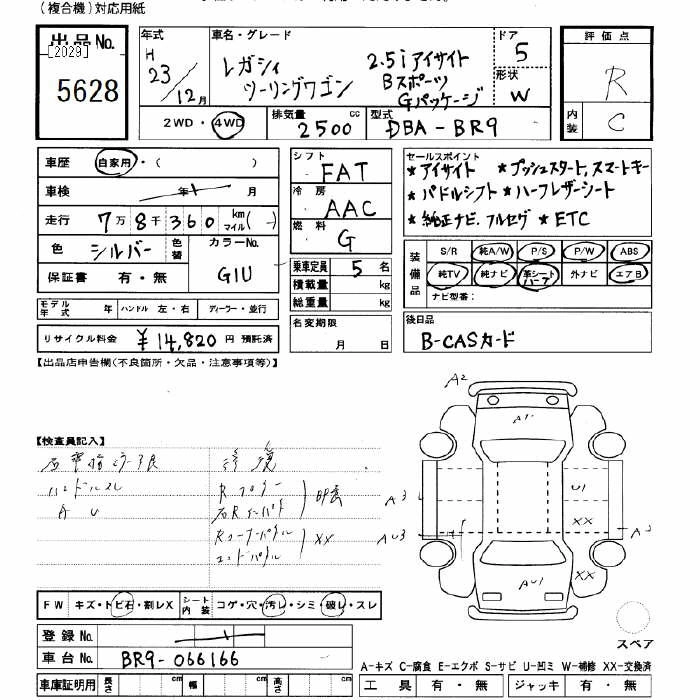 (複合機)対応用紙
出品No. [2029] 5628
年式 H 23/12月
車名・グレード レガシィ ツーリングワゴン 2.5i アイサイト Bスポーツ Gパッケージ
ドア 5
形状 W
評価点 R
内装 C
2WD・4WD
排気量 2500 cc
型式 DBA-BR9
車歴 自家用・( )
車検 年 月
走行 7万8千360 km マイル (-)
色 シルバー 色替
カラーNo. G1U
保証書 有・無
モデル年式 年 ハンドル 左・右 ディーラー・並行
リサイクル料金 ¥14,820円 預託済
シフト FAT
冷房 AAC
燃料 G
乗車定員 5 名
積載量 kg
総重量 kg
名変期限 月 日
セールスポイント
★アイサイト ★プッシュスタート,スマートキー
★パドルシフト ★ハーフレザーシート
★純正ナビ,フルセグ ★ETC
装備品 S/R 純A/W P/S P/W ABS
純TV 純ナビ 革シート ハーフ 外ナビ エアB
ナビ型番:
後日品
B-CASカード
【出品店申告欄(不良箇所・欠品・注意事項等)】
【検査員記入】
ハンドルスレ
A U
修復
XX
A2
A1
A3
U1
XX
AU3
AU1
XX
FW キズ・トビ石・割レX
シート内装 コゲ・穴・汚レ・シミ・破レ・スレ
登録No.
車台No. BR9-066166
スペア
A-キズ C-腐食 E-エクボ S-サビ U-凹ミ W-補修 XX-交換済
車庫証明用 長さ cm 幅 cm 高さ cm
工具 有・無 ジャッキ 有・無